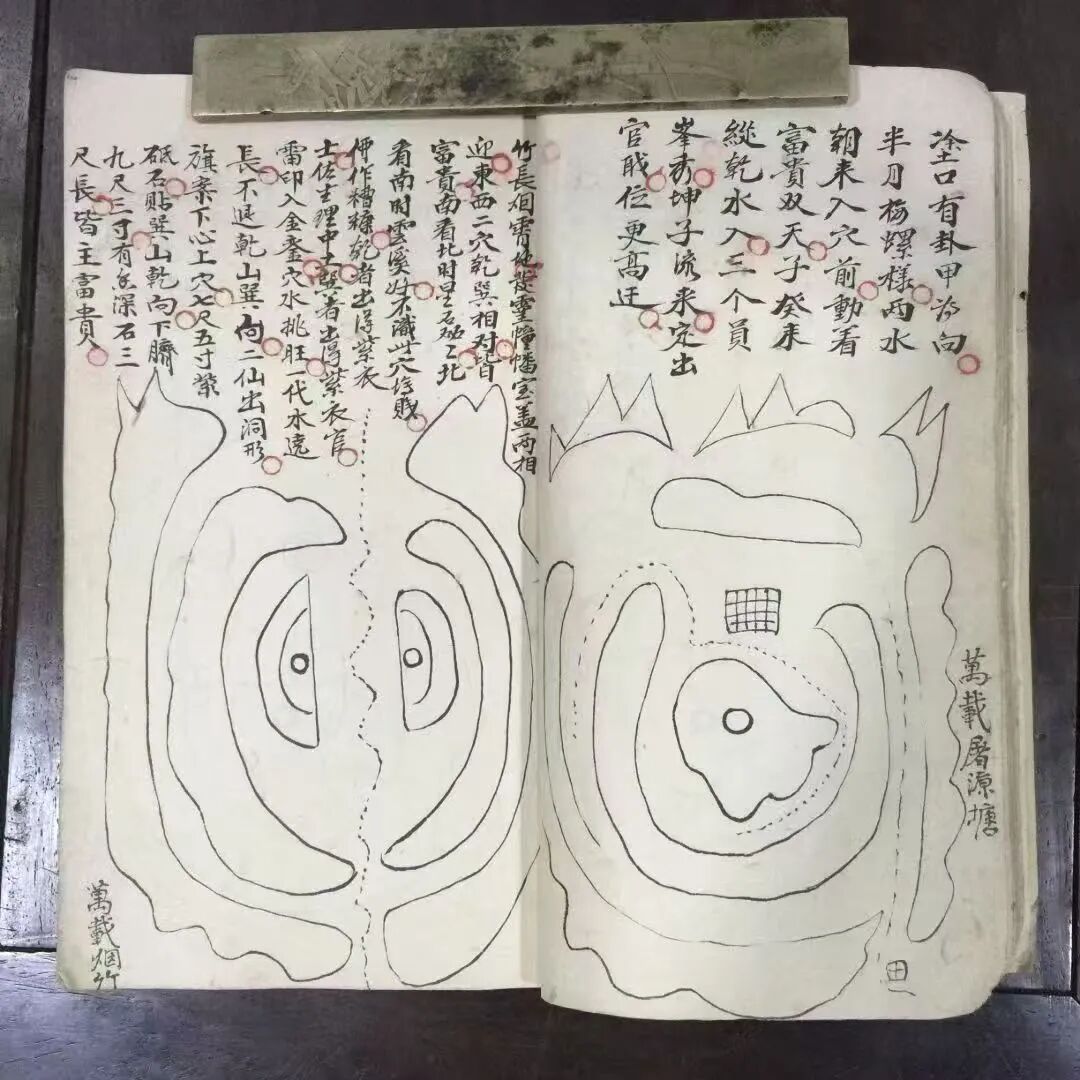 塗口有卦甲为向
半月梅螺樣两水
朝来入穴前動看
富貴双天子癸来
縱乾水入三个員
峯秀坤子派来定出
官戝位更高迁
萬載屠源塘
田
竹長烟霄地從靈幢幡宝盖两相
迎東西二穴乾巽相对皆
富貴南看北时星石北
看南时雲溪姓不識此穴後賤
伊作糟糠乾者出得紫衣
士佐主理中巽者出得紫衣官
雷印入金銮穴水挑旺一代水遶
長不退乾山巽向二仙出洞形
旗案下心上穴七尺五寸紫
砥石貼巽山乾向下臍
九尺三寸有金深石三
尺長皆主富貴
萬載烟竹